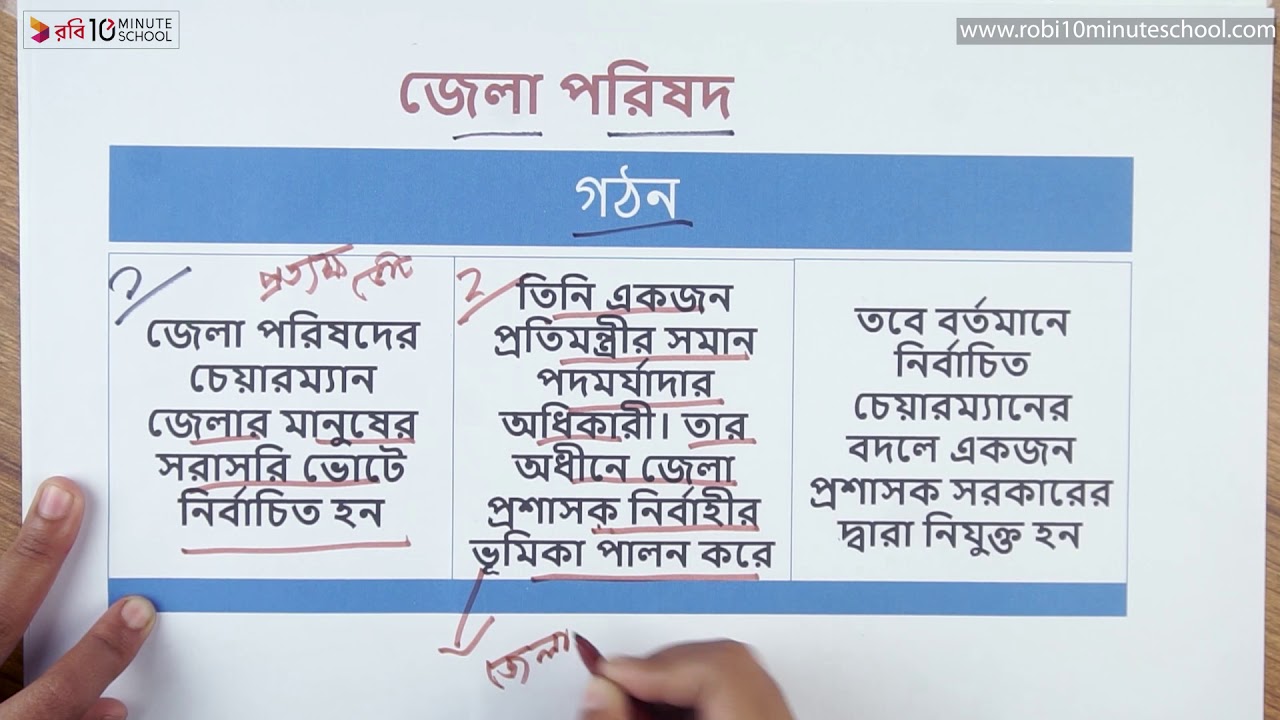 রবি 10 MINUTE SCHOOL
www.robi10minuteschool.com
জেলা পরিষদ
গঠন
১
প্রত্যক্ষ ভোট
জেলা পরিষদের
চেয়ারম্যান
জেলার মানুষের
সরাসরি ভোটে
নির্বাচিত হন
২
তিনি একজন
প্রতিমন্ত্রীর সমান
পদমর্যাদার
অধিকারী। তার
অধীনে জেলা
প্রশাসক নির্বাহীর
ভূমিকা পালন করে
তবে বর্তমানে
নির্বাচিত
চেয়ারম্যানের
বদলে একজন
প্রশাসক সরকারের
দ্বারা নিযুক্ত হন
জেলা